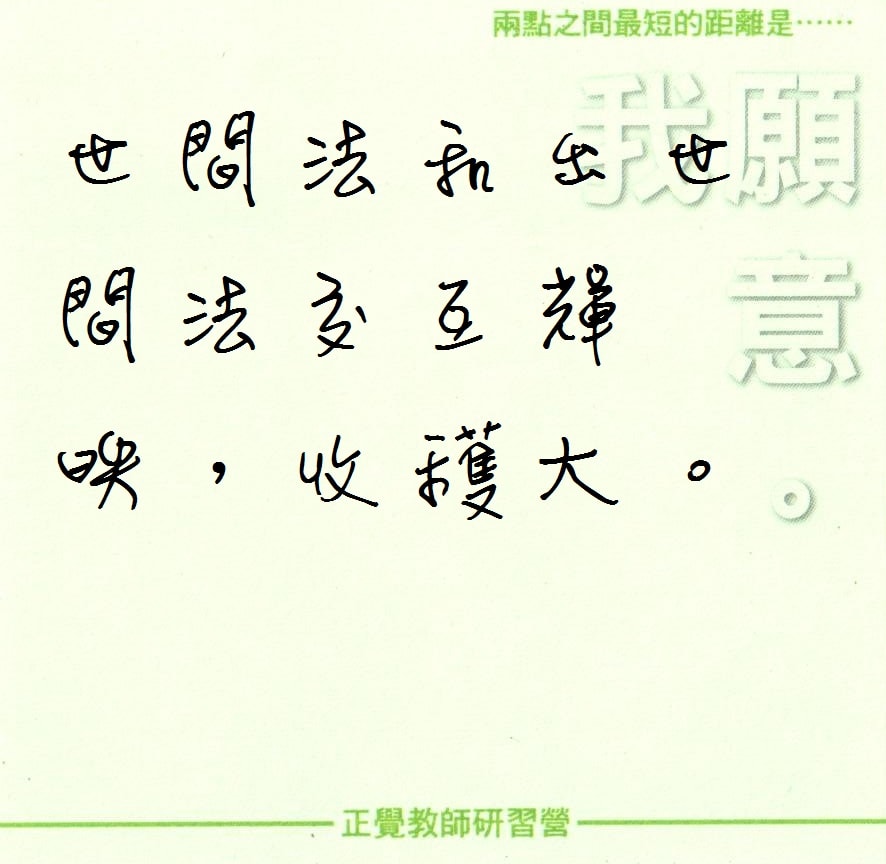 兩點之間最短的距離是⋯⋯
我願意。
世間法和出世
間法交互輝
映，收穫大。
正覺教師研習營